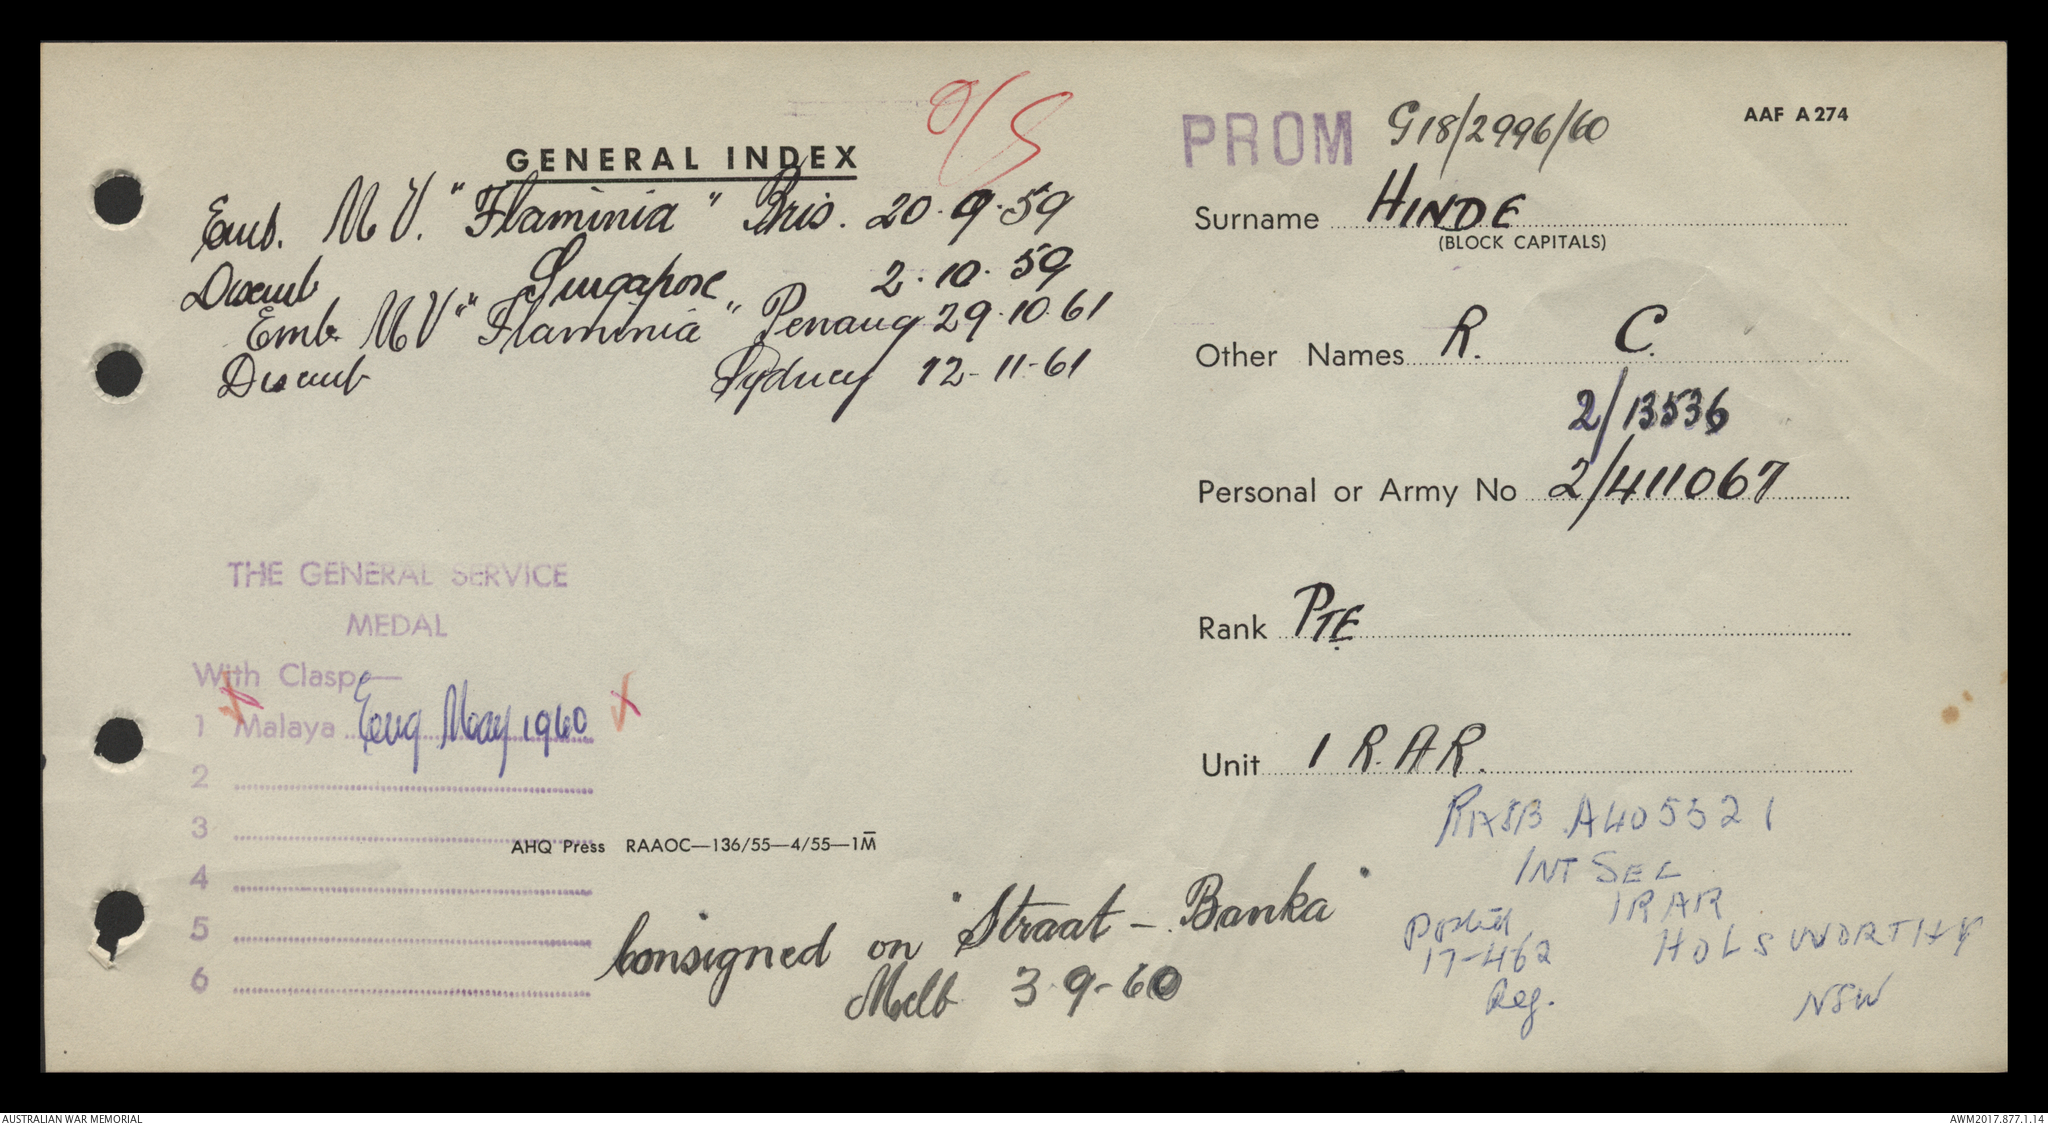 O/S
GENERAL INDEX
Emb. M V. "Flaminia" Bris. 20.9.59
Disemb Singapore 2.10.59
Emb M V "Flaminia" Penang 29.10.61
Disemb Sydney 12-11-61
THE GENERAL SERVICE
MEDAL
With Clasp—
1 Malaya Engr May 1960
2
3
4
5
6
AHQ Press RAAOC—136/55—4/55—1M
Consigned on "Straat - Banka"
Melb 3-9-60
PROM G18/2996/60
AAF A274
Surname HINDE
(BLOCK CAPITALS)
Other Names R. C.
2/13536
Personal or Army No 2/411067
Rank PTE
Unit 1 R.A.R.
RASB A405321
INT SEC
1RAR
Posted HOLSWORTHY
17-4-62
Reg. NSW
AUSTRALIAN WAR MEMORIAL
AWM2017.877.1.14